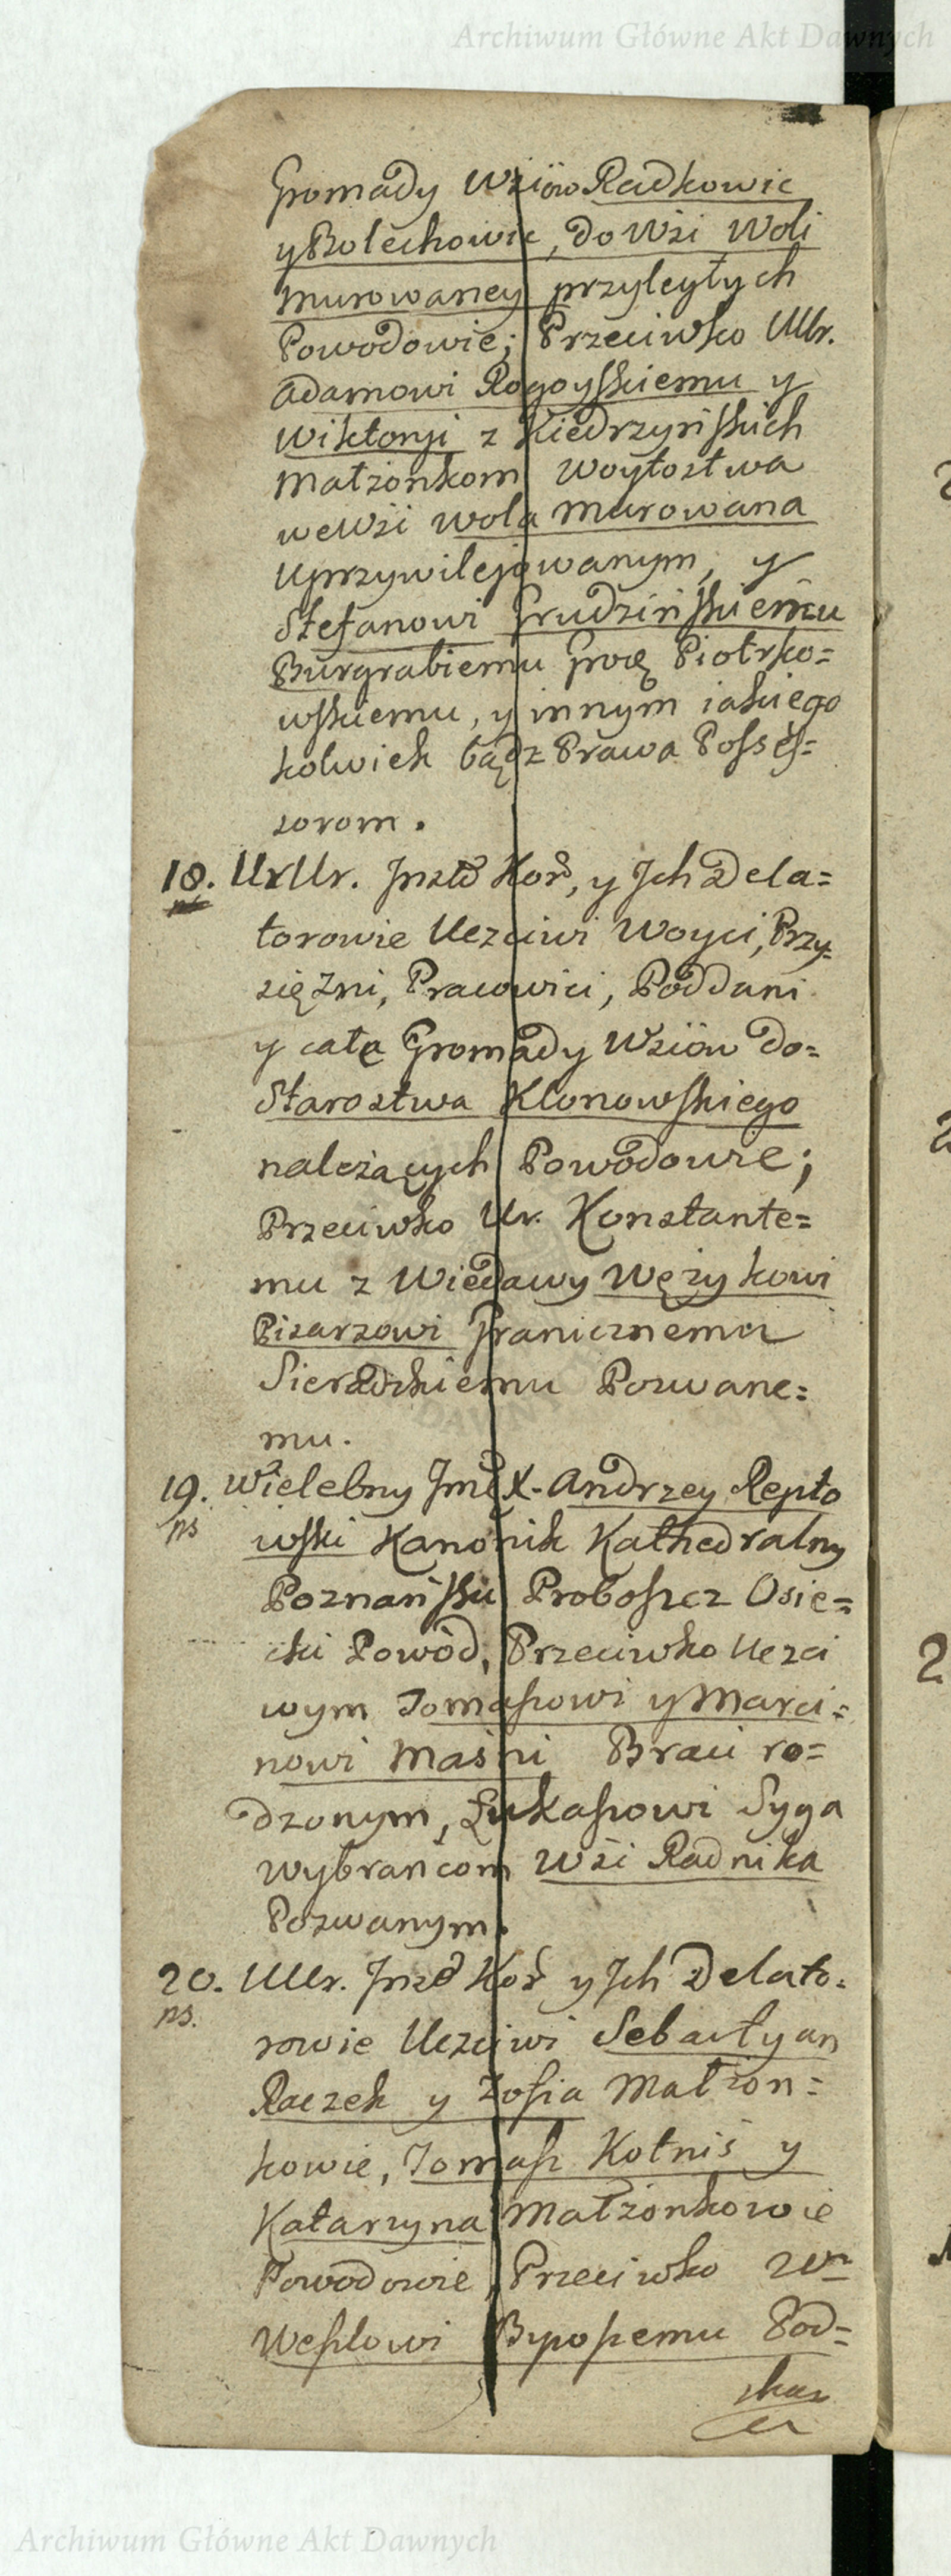 Archiwum Główne Akt Dawnych
Gromady Wsiów Radkowic
y Bolechowic, do Wsi Woli
Murowaney przyległych
Powodowie; Przeciwko UUr.
Adamowi Rogoyskiemu y
Wiktoryi z Kiedrzyńskich
Małżonkom Woytostwa
we Wsi Wola Murowana
Uprzywilejowanym, y
Stefanowi Grudzińskiemu
Burgrabiemu Piotrko=
wskiemu, y innym iakiego
kolwiek bądz Prawa Posses=
sorom.
18. UrUr. y Ich Dela=
torowie Uczciwi Woyci, Przy=
siężni, Pracowici, Poddani
y całe Gromady Wsiów do=
Starostwa Klonowskiego
należących Powodowie;
Przeciwko Ur. Konstante=
mu z Widawy Wężykowi
Pisarzowi Granicznemu
Sieradzkiemu Pozwane=
mu.
19. Wielebny Jmć X. Andrzey Repto
ns
wski Kanonik Kathedralny
Poznański Proboszcz Osie=
cki Powód, Przeciwko Uczci
wym Tomaszowi y Marci=
nowi Maśni Braci ro=
dzonym, Łukaszowi Syga
wybrańcom Wsi Radnika
Pozwanym.
20. UUr. y Ich Delato=
ns.
rowie Uczciwi Sebastyan
Raczek y Zofia Małżon=
kowie, Tomasz Kotniś y
Katarzyna Małżonkowie
Powodowie, Przeciwko
Wesslowi Byposzemu Pod=
skar
Archiwum Główne Akt Dawnych